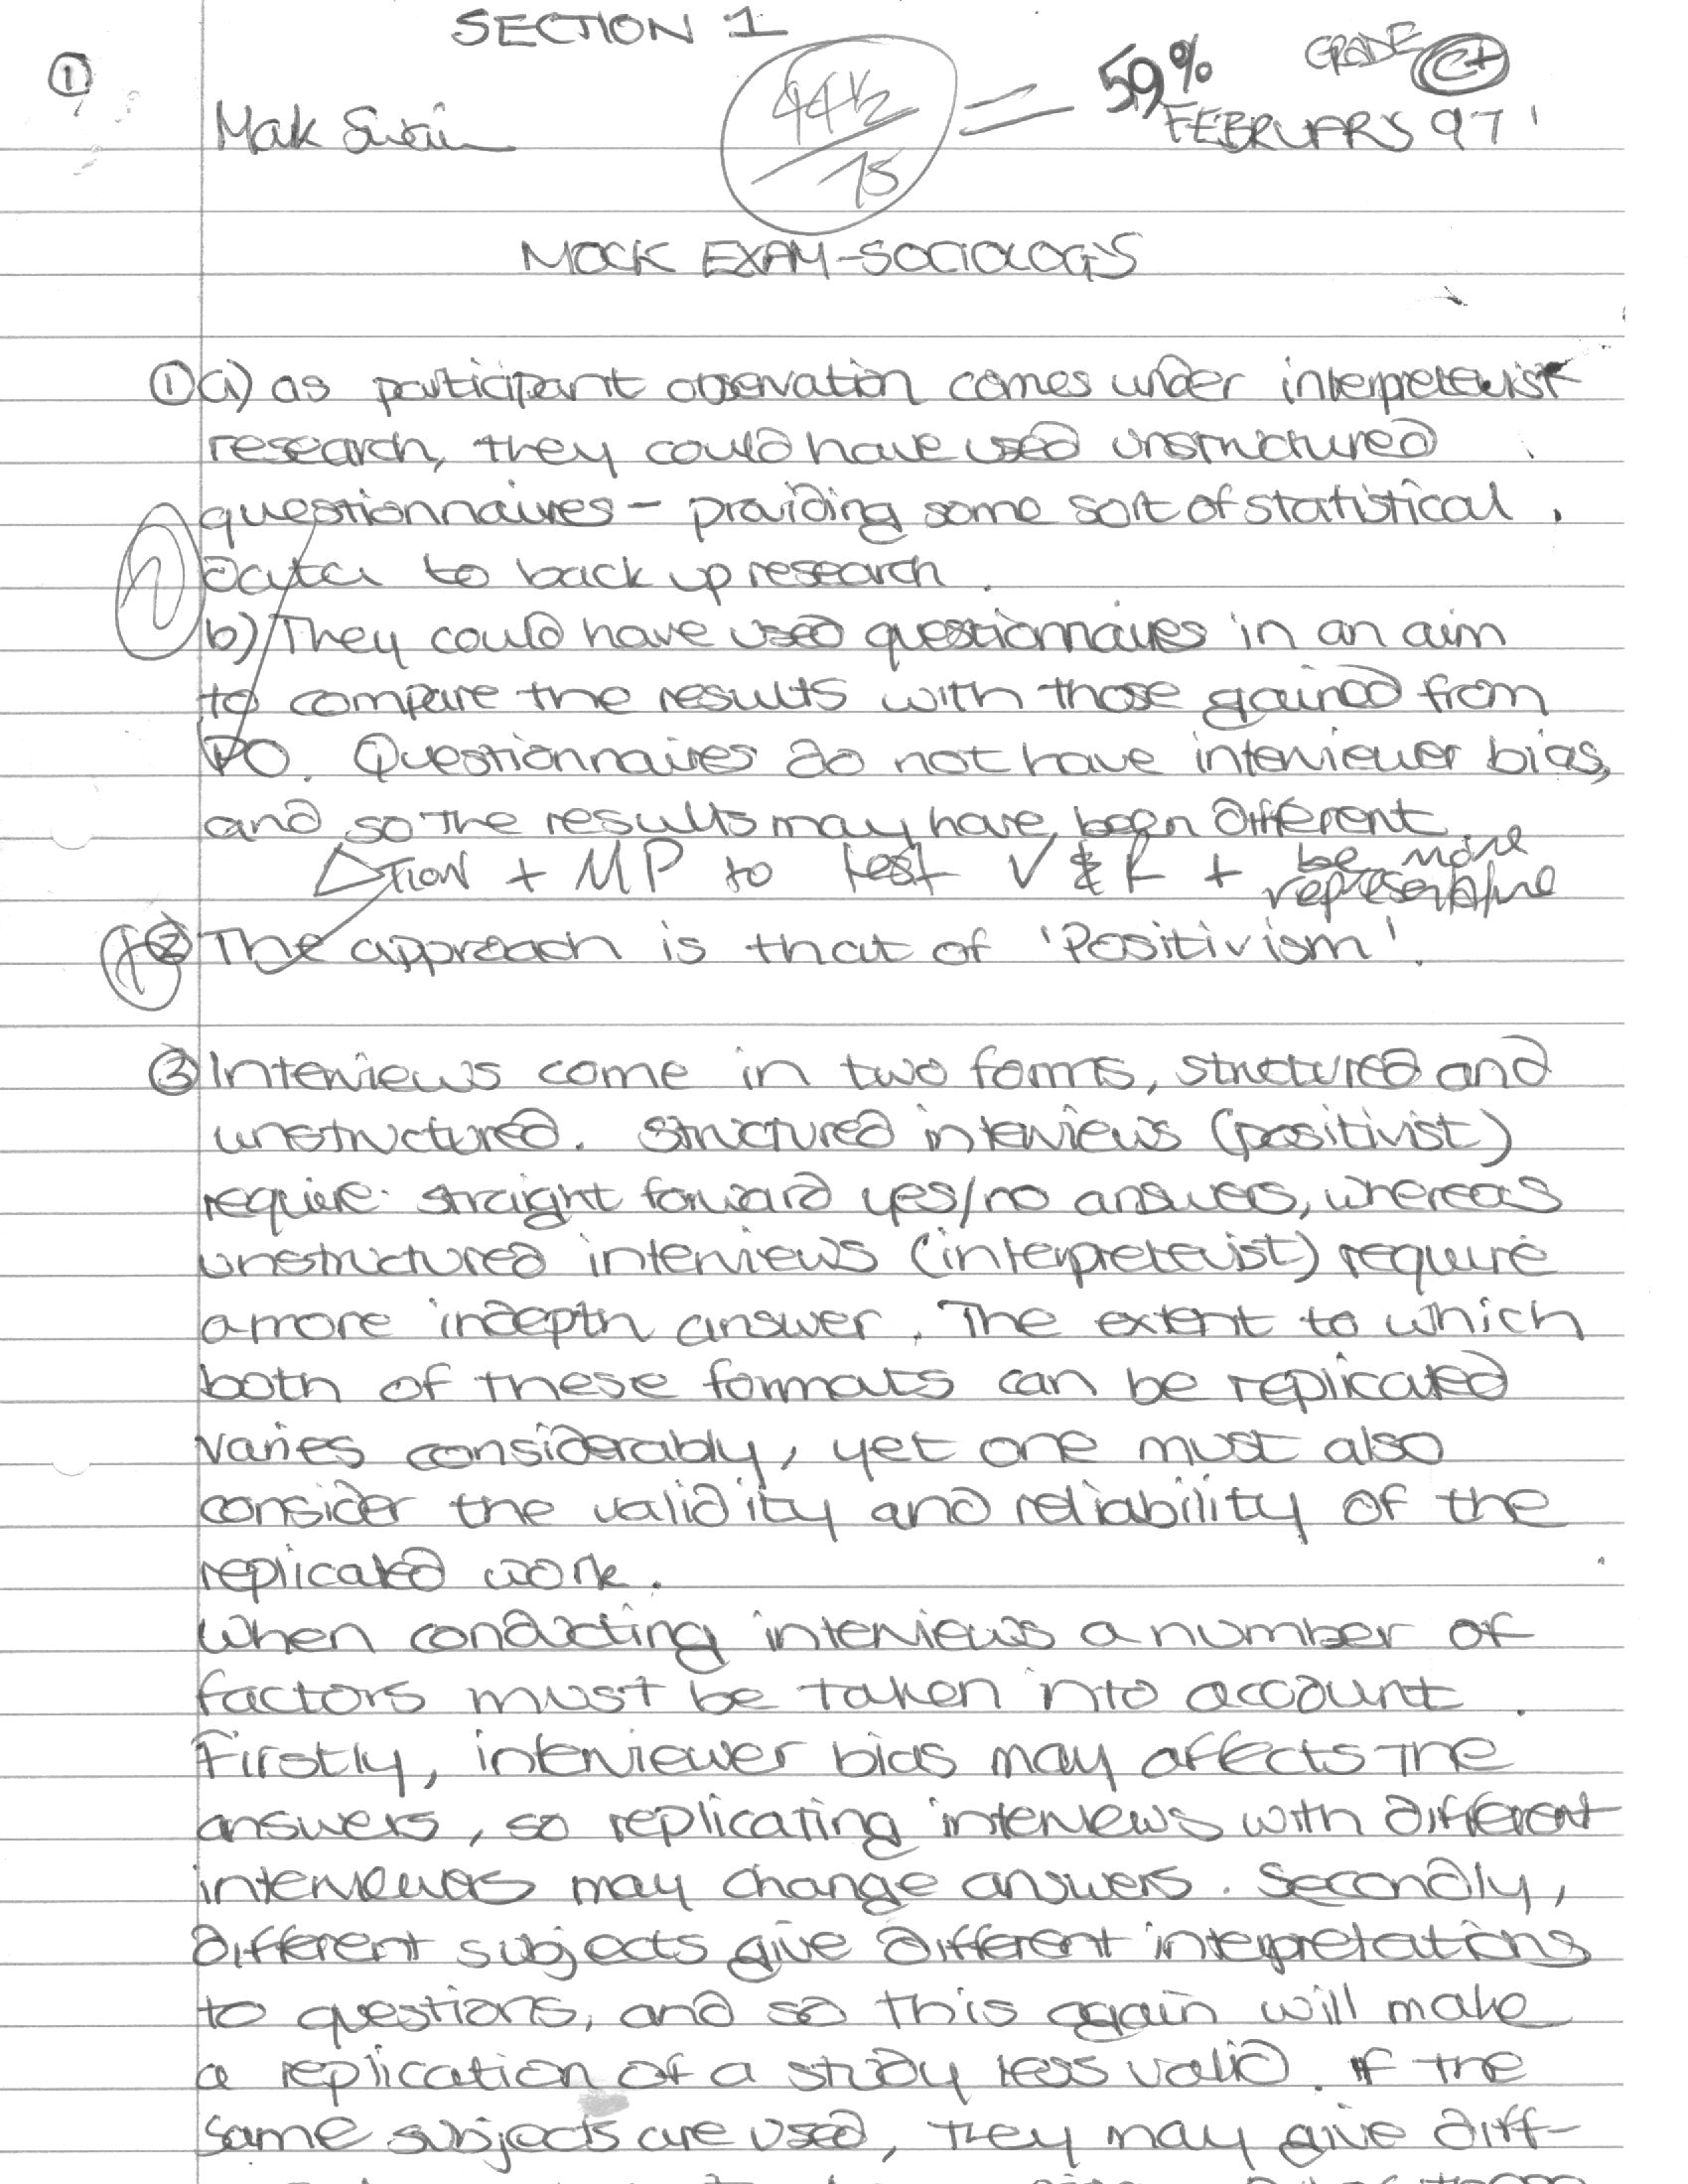 SECTION 1
①
44½/75 = 59% GRADE C+
Mak
FEBRUARY 97'
MOCK EXAM-SOCIOLOGY
① a) as participant observation comes under interpretevist
research, they could have used unstructured
questionnaires - providing some sort of statistical
data to back up research.
b) They could have used questionnaires in an aim
to compare the results with those gained from
PO. Questionnaires do not have interviewer bias,
and so the results may have been different.
ΔTION + MP to test V & R + be more
representative
② The approach is that of 'Positivism'.
③ Interviews come in two forms, structured and
unstructured. Structured interviews (positivist)
require straight forward yes/no answers, whereas
unstructured interviews (interpretevist) require
a more indepth answer. The extent to which
both of these formats can be replicated
varies considerably, yet one must also
consider the validity and reliability of the
replicated work.
When conducting interviews a number of
factors must be taken into account.
Firstly, interviewer bias may affects the
answers, so replicating interviews with different
interviewers may change answers. Secondly,
different subjects give different interpretations
to questions, and so this again will make
a replication of a study less valid. If the
same subjects are used, they may give diff-